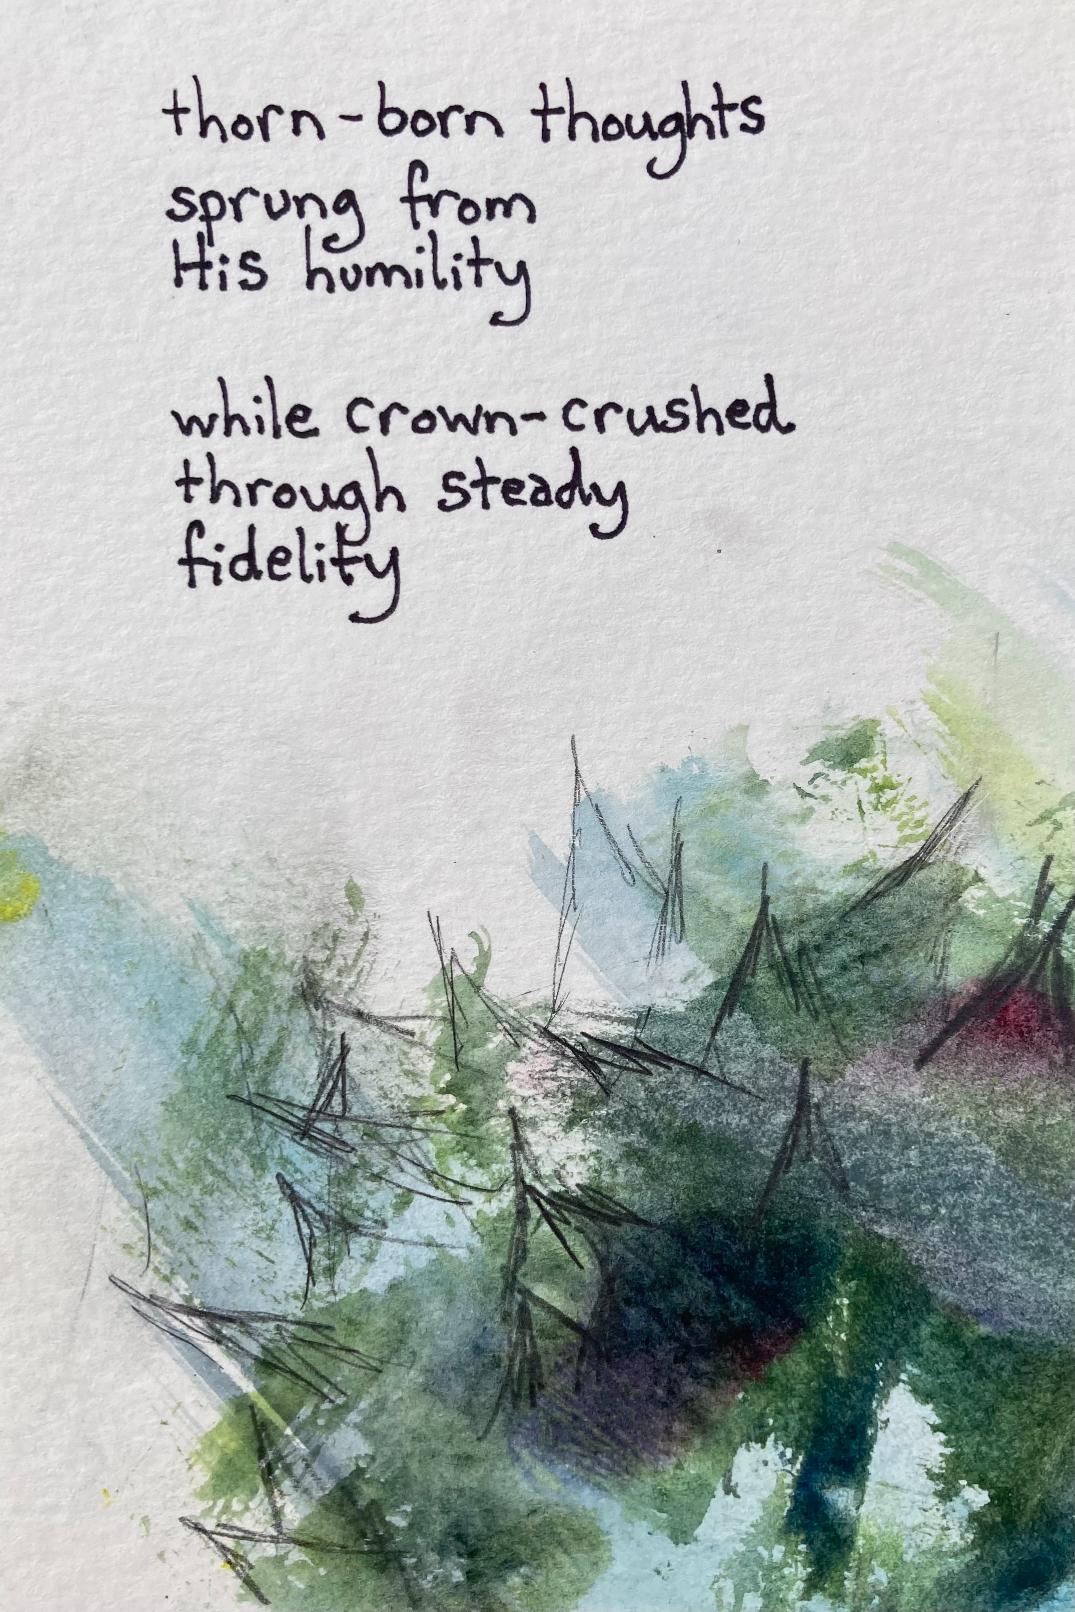 thorn-born thoughts
sprung from
His humility
while crown-crushed
through steady
fidelity